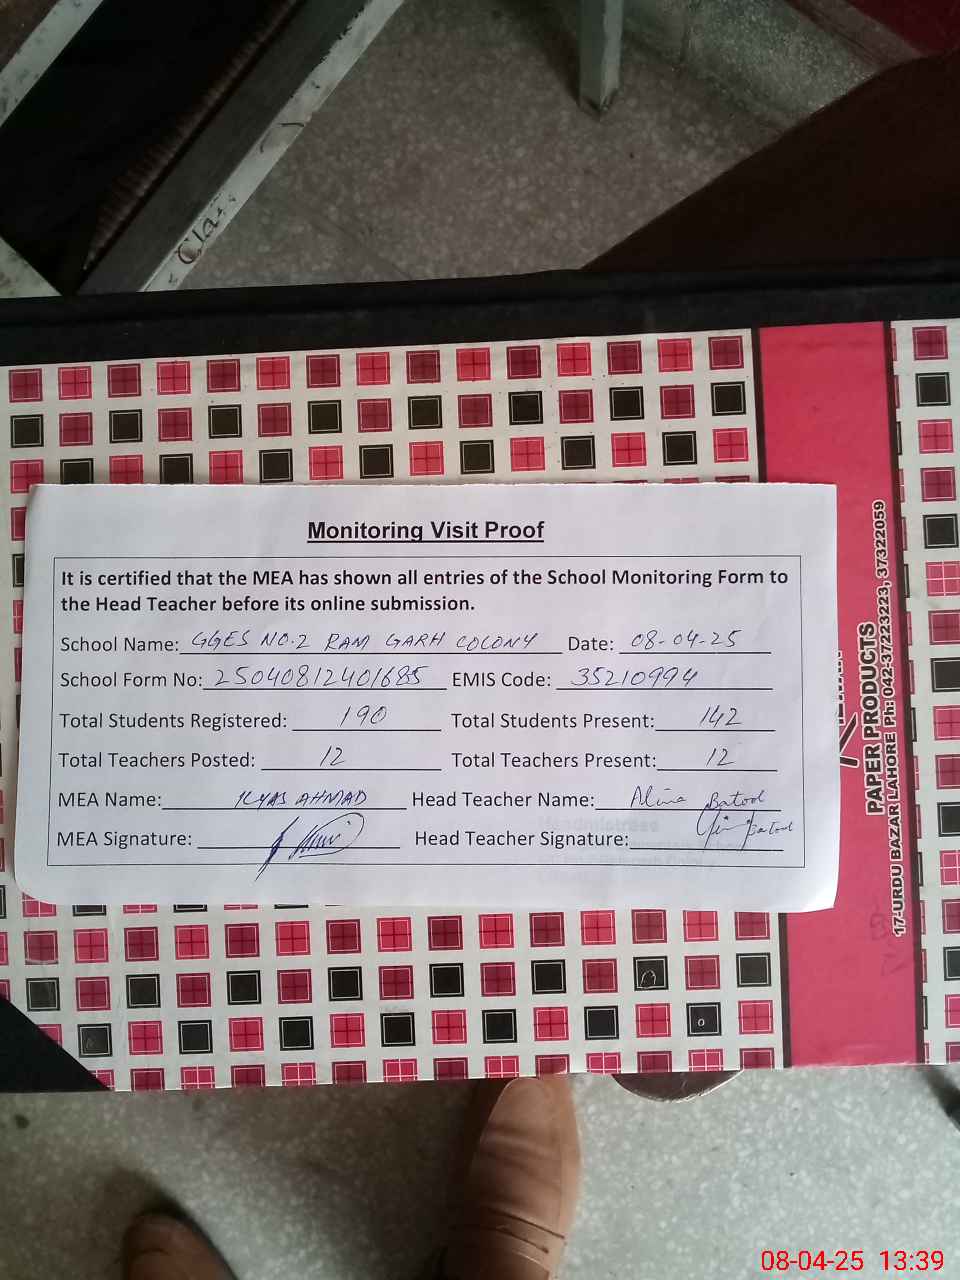 Cla
Monitoring Visit Proof
It is certified that the MEA has shown all entries of the School Monitoring Form to
the Head Teacher before its online submission.
School Name: GGES NO.2 RAM GARH COLONY Date: 08-04-25
School Form No: 25040812401685 EMIS Code: 35210994
Total Students Registered: 190 Total Students Present: 142
Total Teachers Posted: 12 Total Teachers Present: 12
MEA Name: ILYAS AHMAD Head Teacher Name: Alina Batool
MEA Signature: Head Teacher Signature: Batool
Headmistress
PAPER PRODUCTS
17-URDU BAZAR LAHORE Ph: 042-37223223, 37322059
08-04-25 13:39